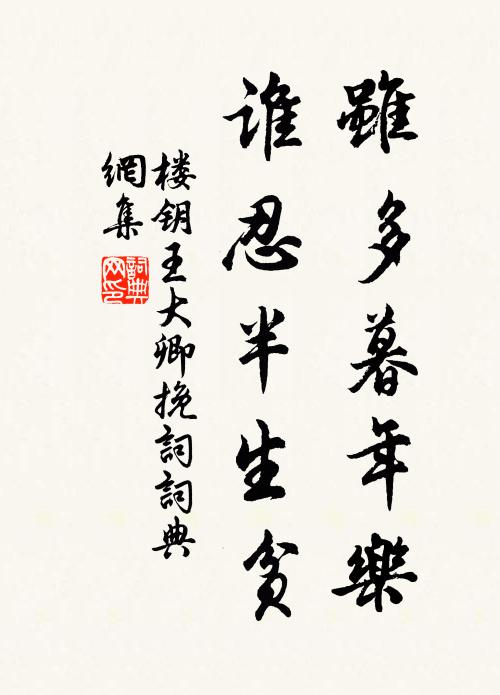 雖多暮年樂
誰忍半生貧
楼钥王大卿挽詞詞典
網集
詞典
网印